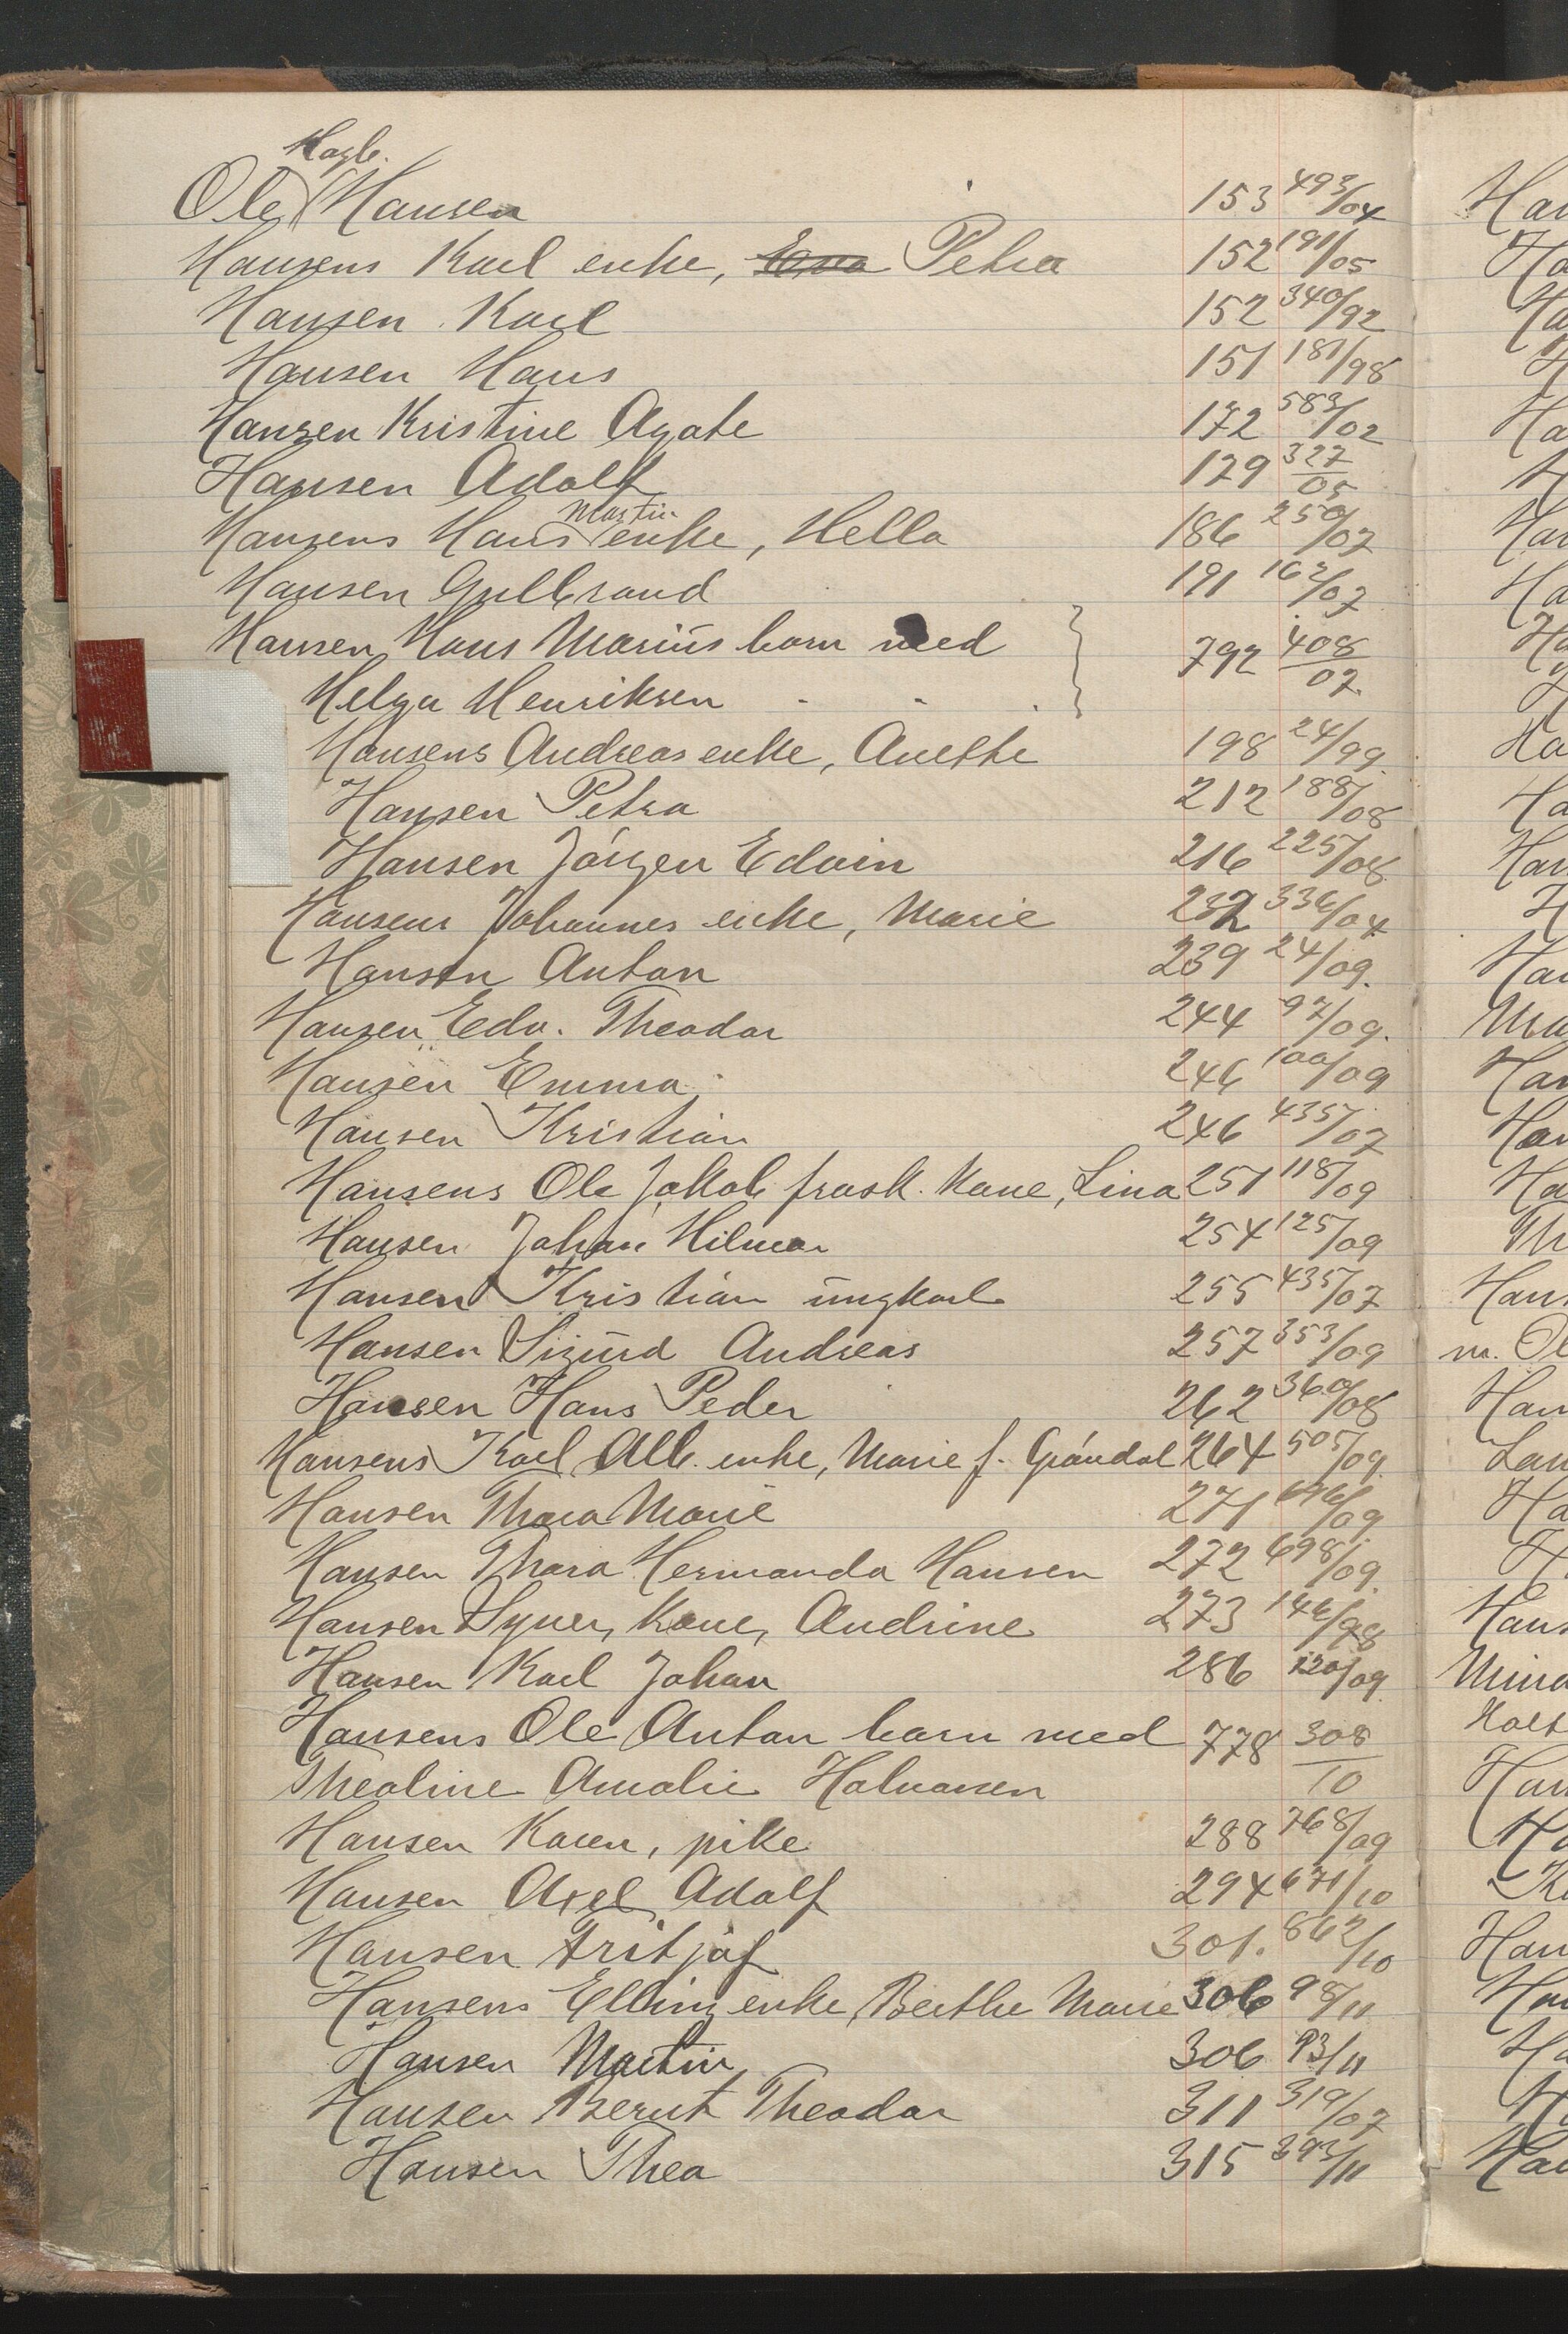 Hagb.
Ole Hansen 153 493/04
Hansens Karl enke, Eva Petra 152 191/05
Hansen Karl 152 340/92
Hansen Hans 151 181/98
Hansen Kristine Agate 172 583/02
Hansen Adolf 179 327/05
Martin
Hansens Hans enke, Hella 186 250/07
Hansen Gulbrand 191 162/07
Hansen Hans Marius barn med
792 408/07
Helga Henriksen
Hansens Andreas enke, Anette 198 24/99
Hansen Petra 212 188/08
Hansen Jörgen Edvin 216 225/08
Hansens Johannes enke, Marie 232 336/04
Hansen Anton 239 24/09.
Hansen Edv. Theodor 244 97/09.
Hansen Emma 246 100/09
Hansen Kristian 246 435/07
Hansens Ole Jakob frask. Kone, Lina 251 118/09
Hansen Johan Hilmar 254 125/09
Hansen Kristian ungkarl 255 435/07
Hansen Sigurd Andreas 257 353/09
Hansen Hans Peder 262 360/08
Hansens Karl Alb. enke, Marie f. Gröndal 264 505/09
Hansen Thora Marie 271 /09
Hansen Thora Hermanda Hansen 272 698/09.
Hansen Syver, Kone, Andrine 273 146/98
Hansen Karl Johan 286 120/09
Hansens Ole Anton barn med 778 308/10
Theoline Amalie Halvorsen
Hansen Karen, pike 288 768/09
Hansen Axel Adolf 294 671/10
Hansen Fritjof 301. 862/10
Hansens Elling enke, Berthe Marie 306 98/11
Hansen Martin 306 93/11
Hansen Bernt Theodor 311 319/07
Hansen Thea 315 393/11